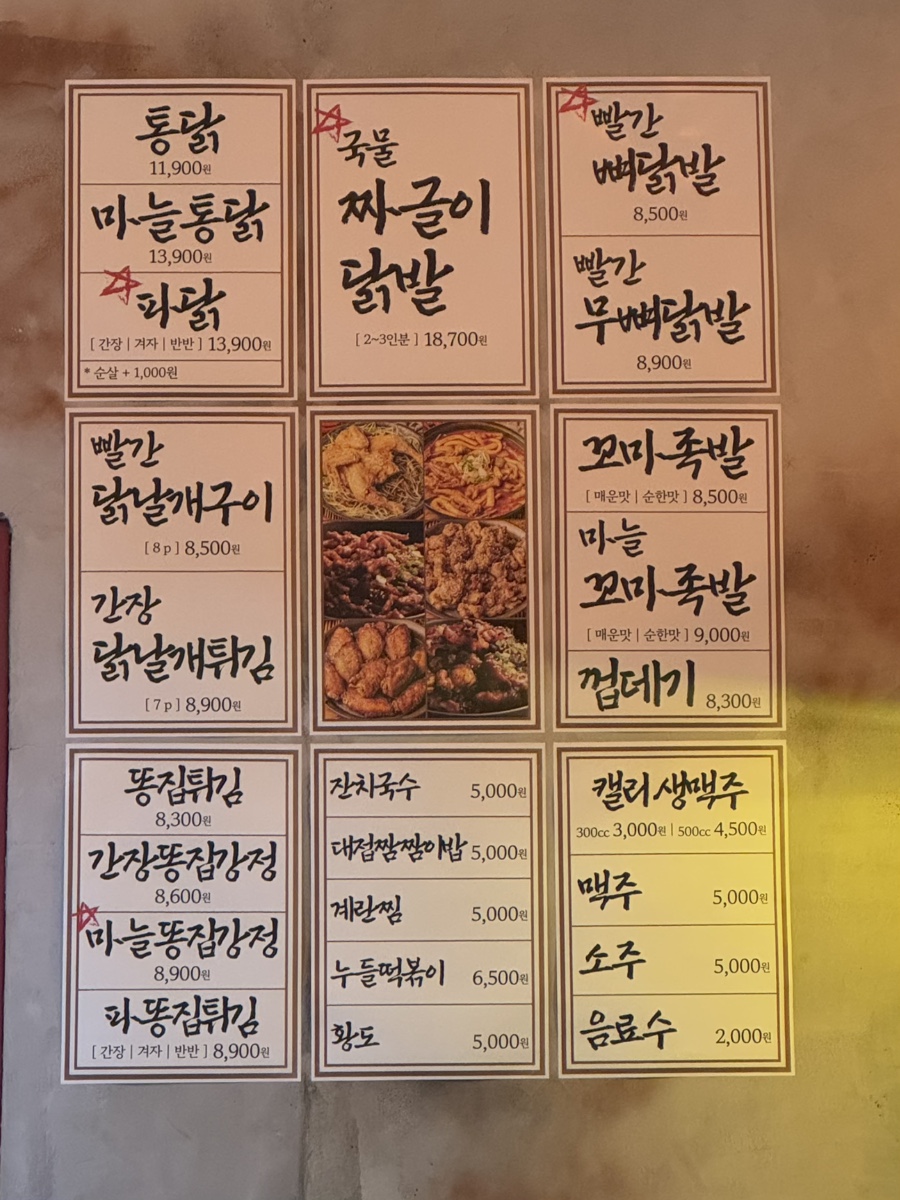 통닭
11,900원
마늘통닭
13,900원
파닭
[ 간장 | 겨자 | 반반 ] 13,900원
* 순살 + 1,000원
국물
짜글이
닭발
[ 2~3인분 ] 18,700원
빨간
뼈닭발
8,500원
빨간
무뼈닭발
8,900원
빨간
닭날개구이
[ 8 p ] 8,500원
간장
닭날개튀김
[ 7 p ] 8,900원
꼬미족발
[ 매운맛 | 순한맛 ] 8,500원
마늘
꼬미족발
[ 매운맛 | 순한맛 ] 9,000원
껍데기 8,300원
똥집튀김
8,300원
간장똥집강정
8,600원
마늘똥집강정
8,900원
파똥집튀김
[ 간장 | 겨자 | 반반 ] 8,900원
잔치국수 5,000원
대접짬짬이밥 5,000원
계란찜 5,000원
누들떡볶이 6,500원
황도 5,000원
캘리생맥주
300cc 3,000원 | 500cc 4,500원
맥주 5,000원
소주 5,000원
음료수 2,000원